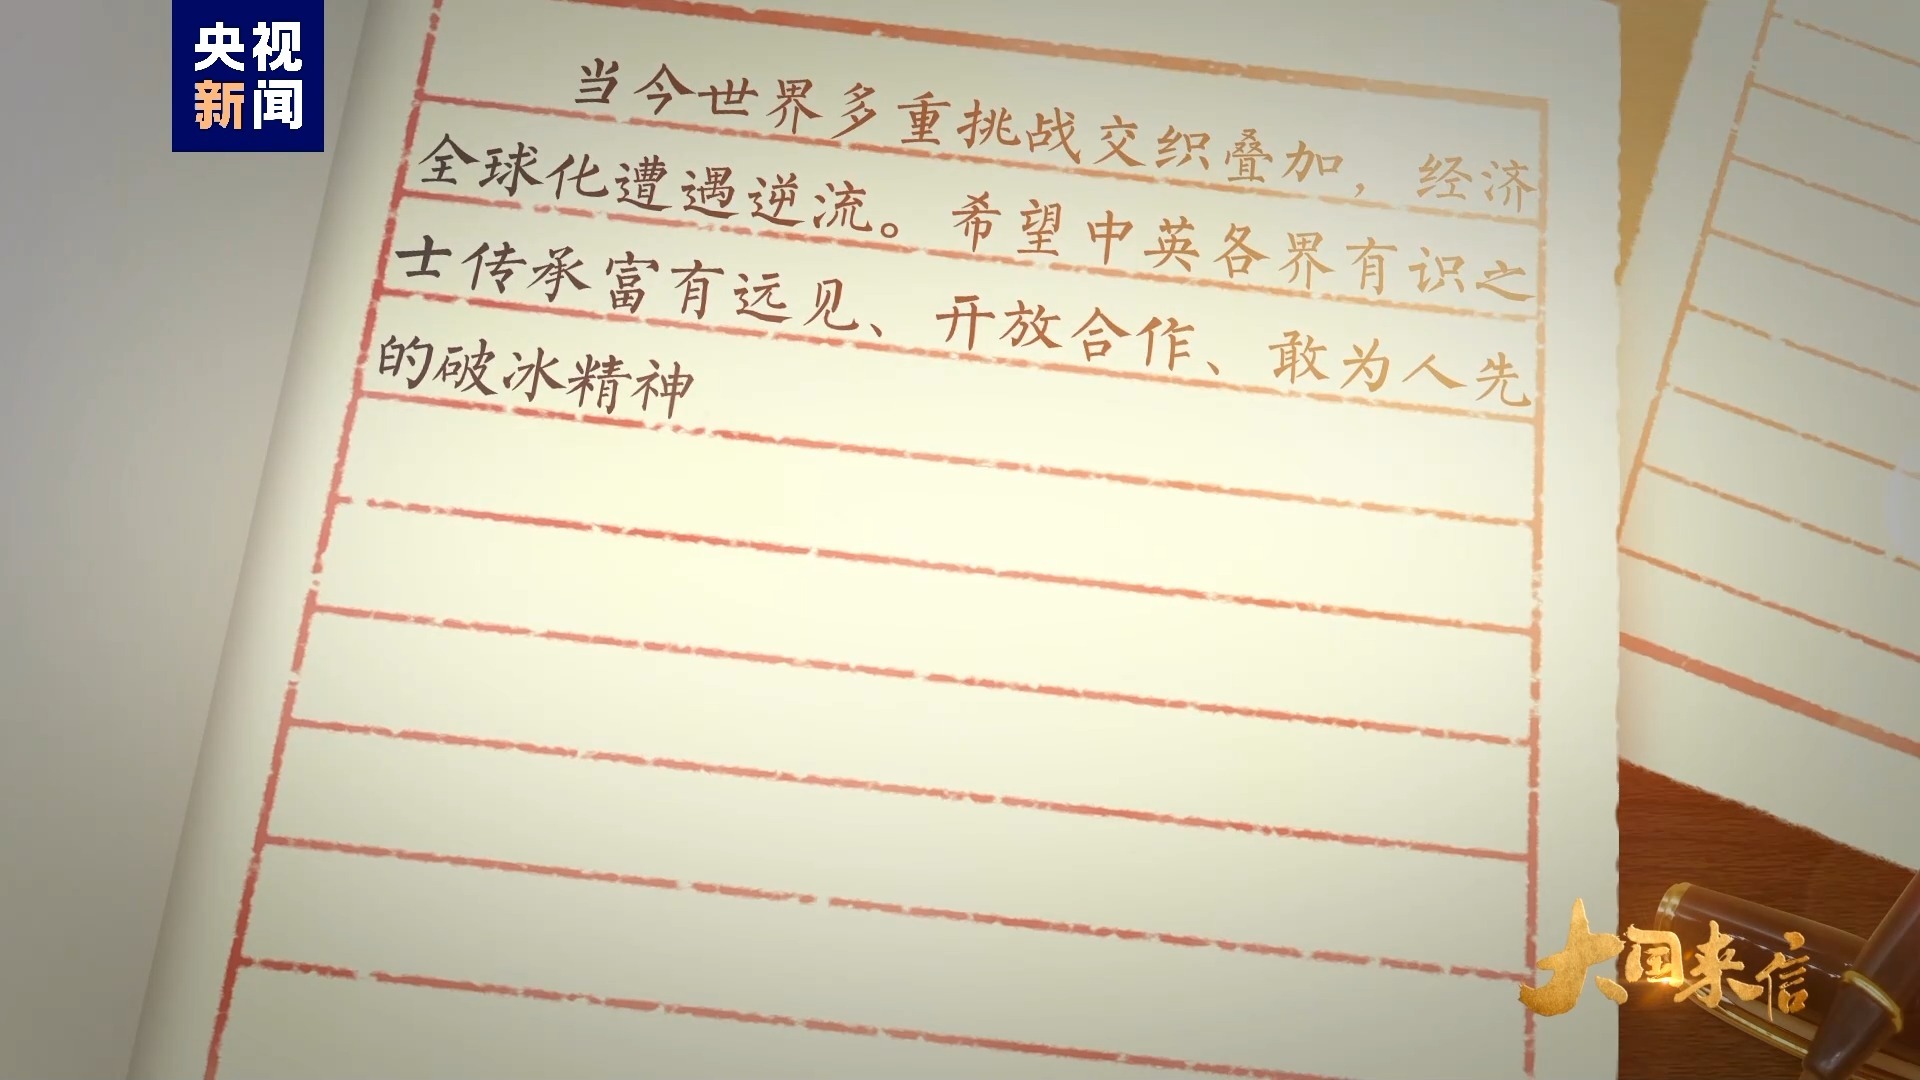 央视
新闻
当今世界多重挑战交织叠加，经济
全球化遭遇逆流。希望中英各界有识之
士传承富有远见、开放合作、敢为人先
的破冰精神
大国来信